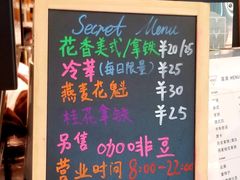 Secret Menu
花香美式/拿铁 ¥20/25
冷萃(每日限量) ¥25
燕麦花魁 ¥30
桂花拿铁 ¥25
另售 咖啡豆
营业时间 8:00-22:00
MENU